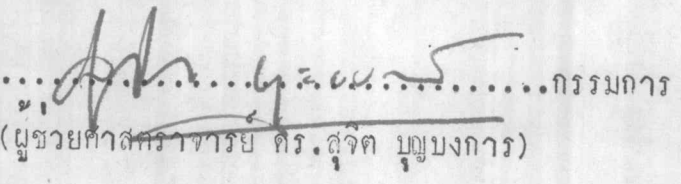 ....................กรรมการ
(ผู้ช วยศาสตราจารย์ ดร.สุจิต บุญบงการ)